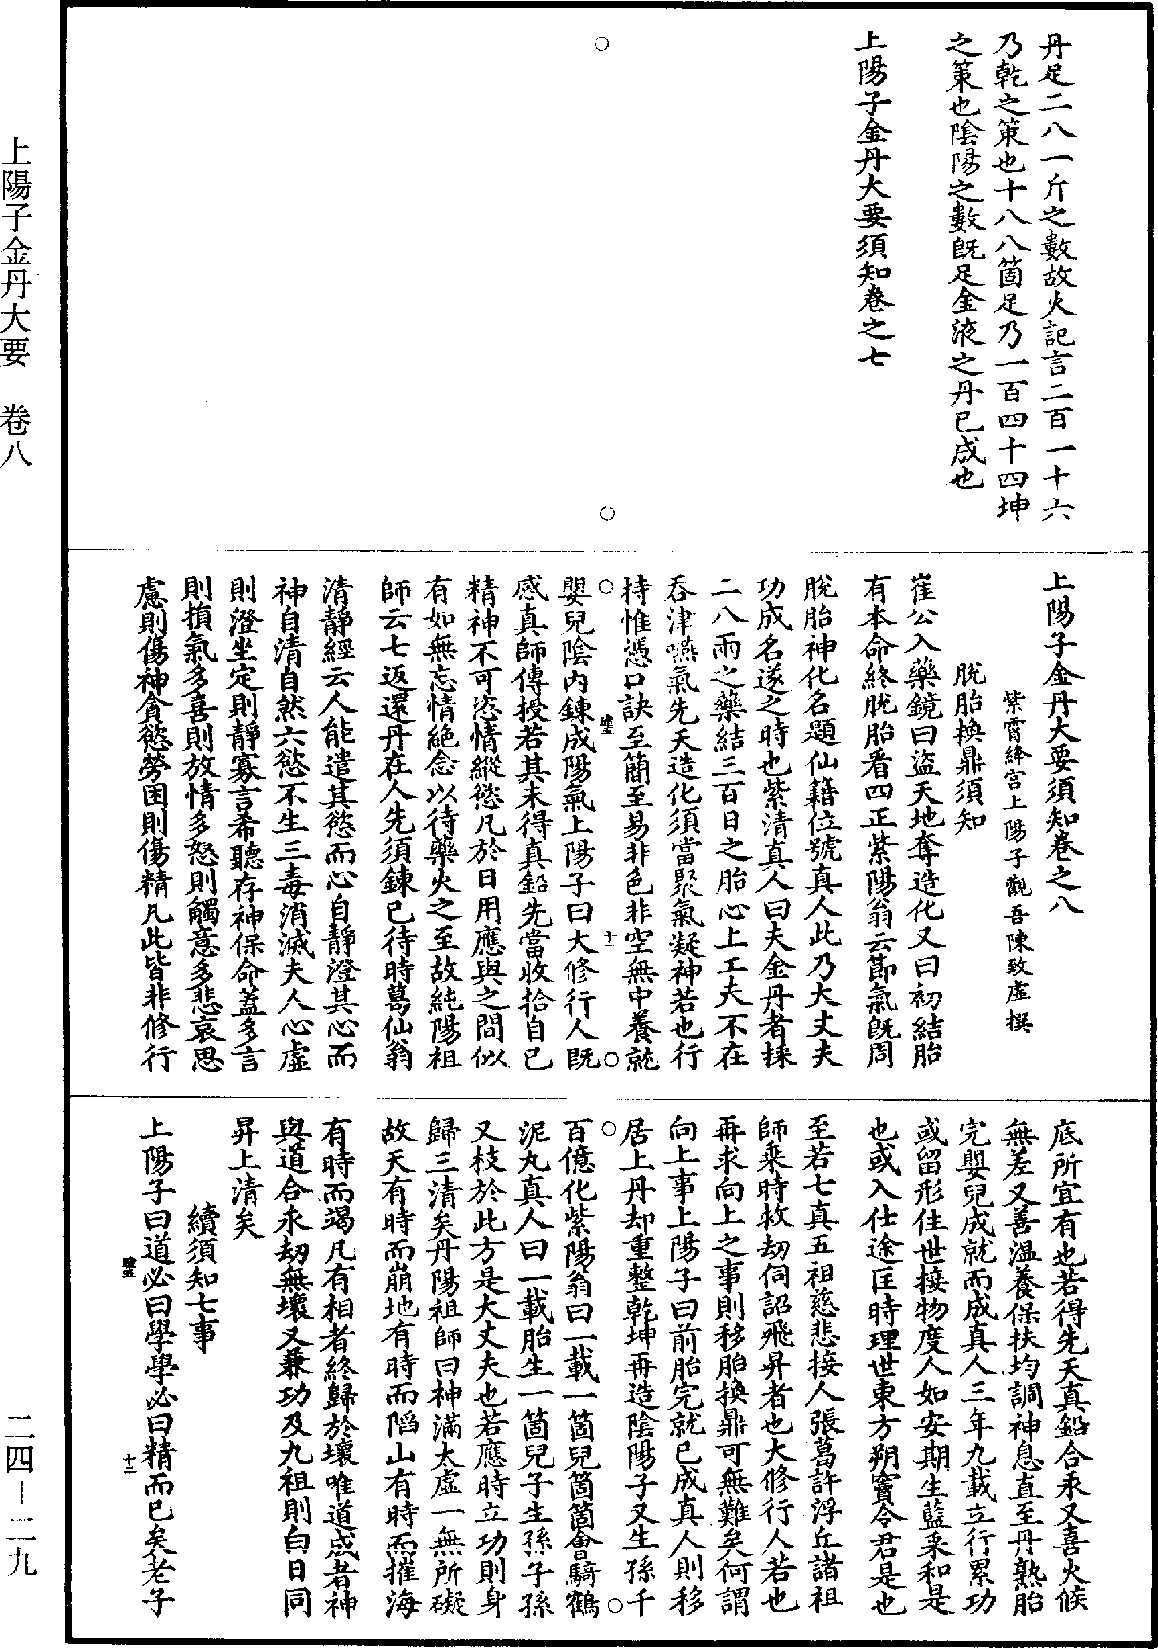 丹足二八一斤之數故火記言二百一十六
乃乾之策也十八八箇足乃一百四十四坤
之策也陰陽之數旣足金液之丹已成也
上陽子金丹大要須知卷之七
上陽子金丹大要須知卷之八
紫霄絳宮上陽子觀吾陳致虛撰
脫胎換鼎須知
崔公入藥鏡曰盜天地奪造化又曰初結胎
有本命終脫胎看四正紫陽翁云節氣旣周
脫胎神化名題仙籍位號真人此乃大丈夫
功成名遂之時也紫清真人曰夫金丹者採
二八兩之藥結三百日之胎心上工夫不在
吞津嚥氣先天造化須當聚氣凝神若也行
持惟憑口訣至簡至易非色非空無中養就
嬰兒陰內鍊成陽氣上陽子曰大修行人旣
感真師傳授若其未得真鉛先當收拾自己
精神不可恣情縱慾凡於日用應與之間似
有如無忘情絕念以待藥火之至故純陽祖
師云七返還丹在人先須鍊已待時葛仙翁
清靜經云人能遣其慾而心自靜澄其心而
神自清自然六慾不生三毒消滅夫人心虛
則澄坐定則靜寡言希聽存神保命蓋多言
則損氣多喜則放情多怒則觸意多悲哀思
慮則傷神貪慾勞困則傷精凡此皆非修行
底所宜有也若得先天真鉛合汞又喜火候
無差又善溫養保扶均調神息直至丹熟胎
完嬰兒成就而成真人三年九載立行累功
或留形住世接物度人如安期生藍采和是
也或入仕途匡時理世東方朔竇令君是也
至若七真五祖慈悲接人張葛許浮丘諸祖
師乘時救劫伺詔飛昇者也大修行人若也
再求向上之事則移胎換鼎可無難矣何謂
向上事上陽子曰前胎完就已成真人則移
居上丹却重整乾坤再造陰陽子又生孫千
百億化紫陽翁曰一載一箇兒箇箇會騎鶴
泥丸真人曰一載胎生一箇兒子生孫子孫
又枝於此方是大丈夫也若應時立功則身
歸三清矣丹陽祖師曰神滿太虛一無所礙
故天有時而崩地有時而陷山有時而摧海
有時而竭凡有相者終歸於壞唯道成者神
與道合永劫無壞又兼功及九祖則白日同
昇上清矣
續須知七事
上陽子曰道必曰學學必曰精而已矣老子
十一
十二
上陽子金丹大要　卷八
二四－二九